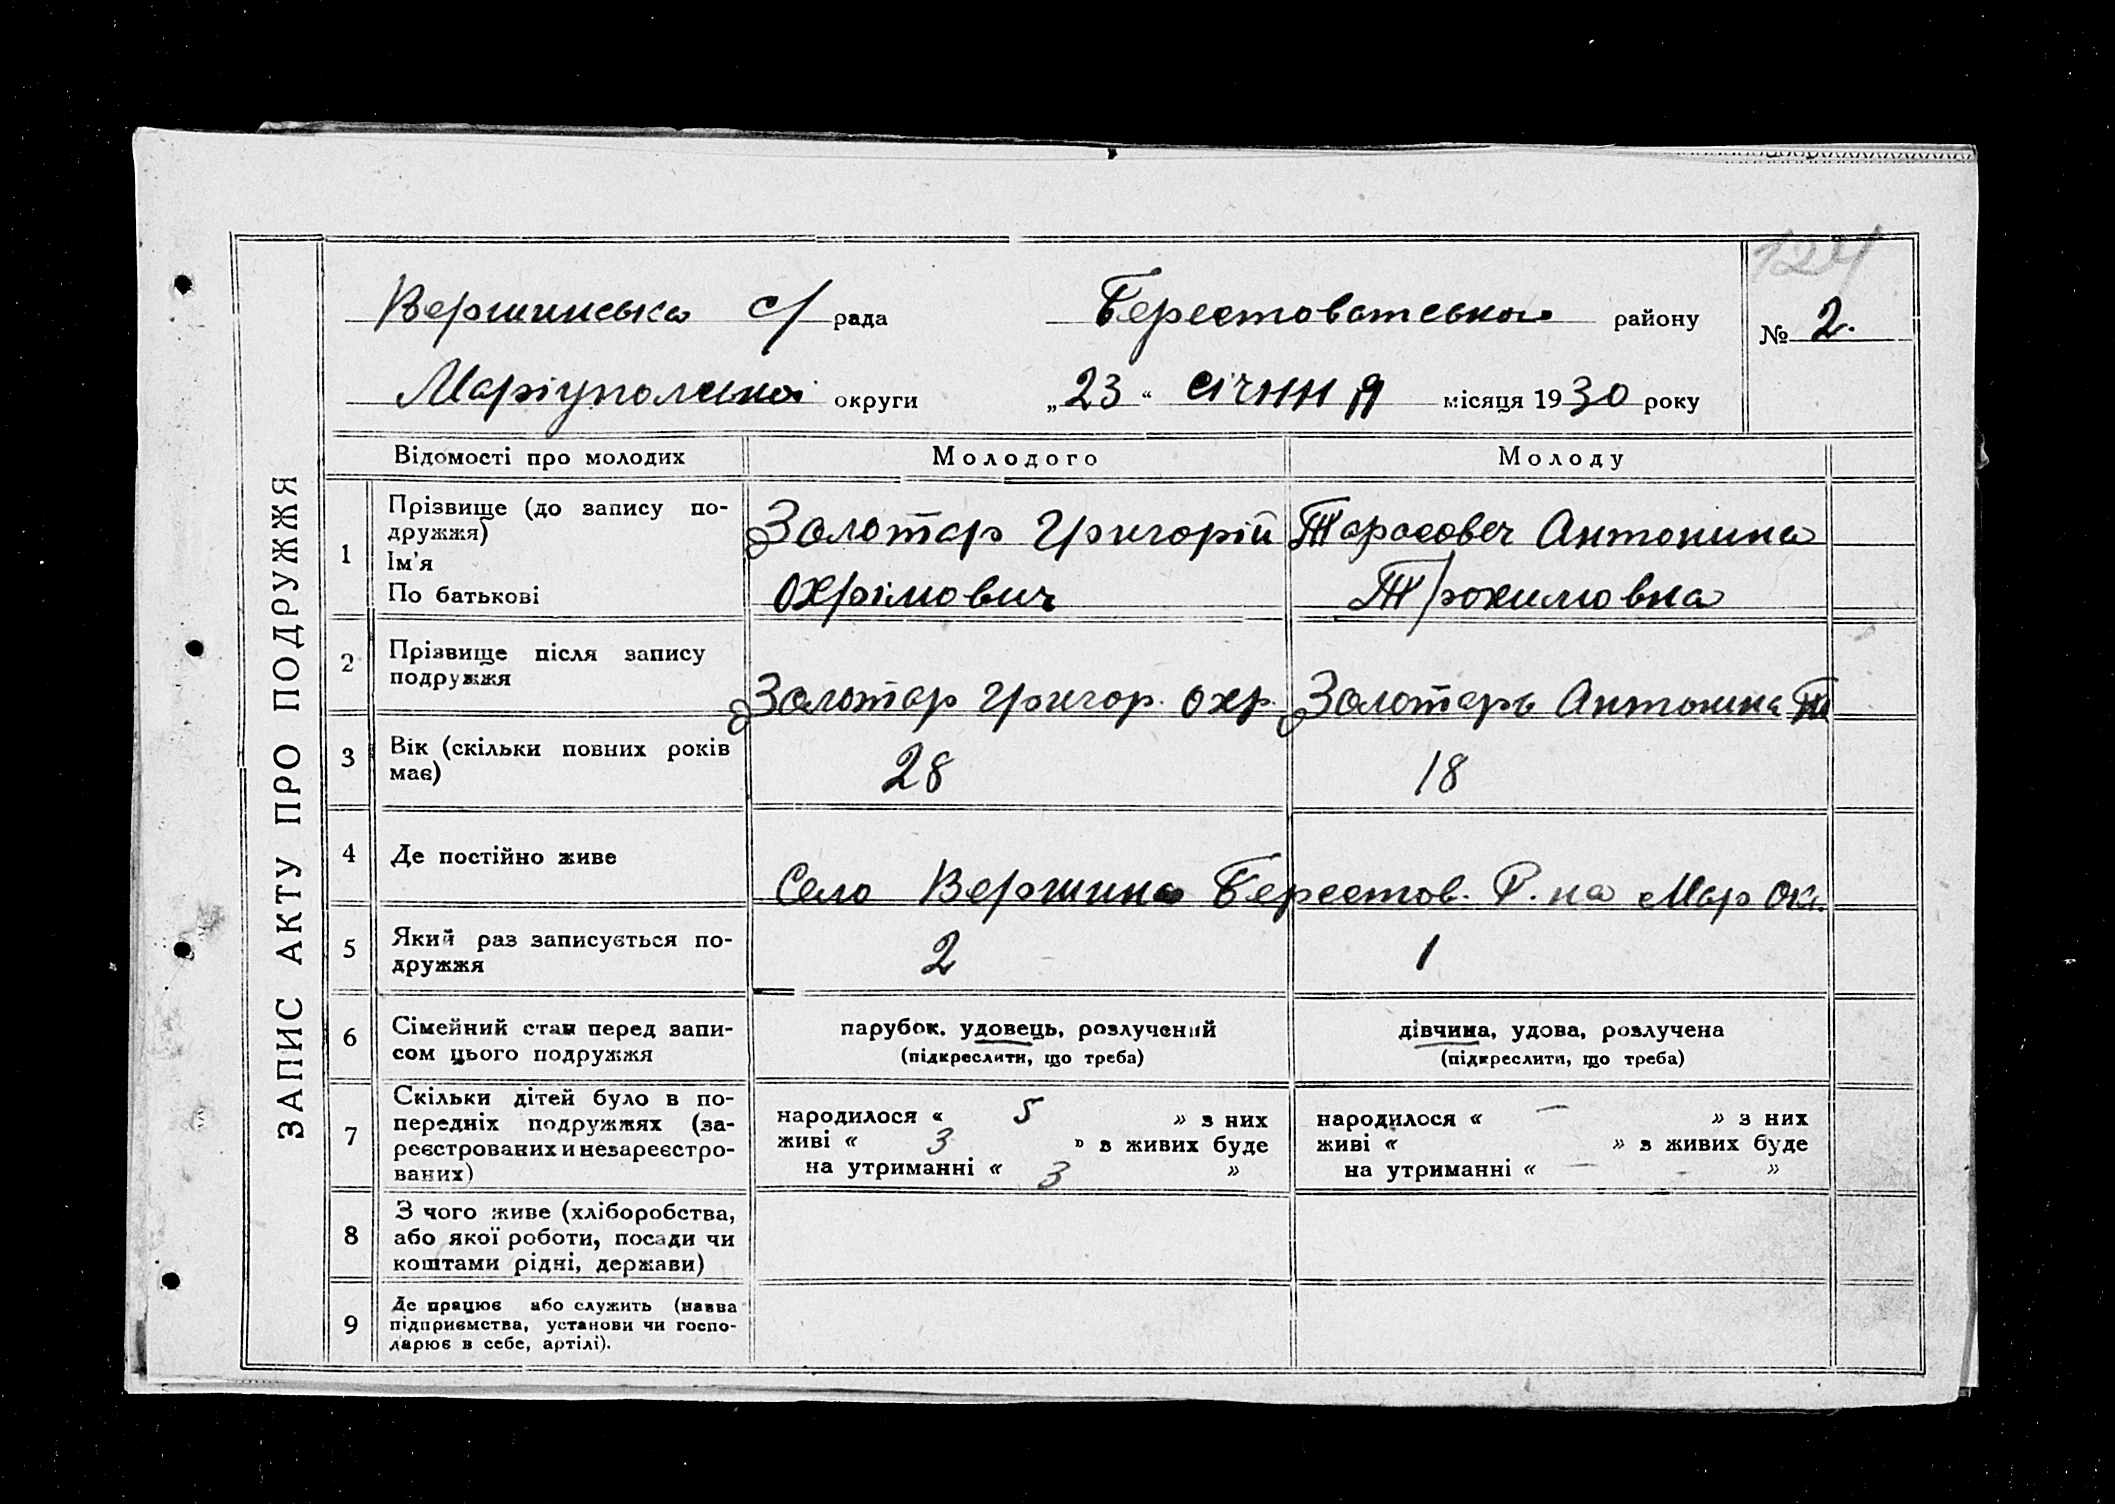 124
Вершинська с/ рада Берестоватського району № 2.
Маріупольської округи „23“ січння місяця 1930 року
ЗАПИС АКТУ ПРО ПОДРУЖЖЯ
Відомості про молодих Молодого Молоду
1 Прізвище (до запису подружжя) Ім'я По батькові
Золотар Григорій Тарасовеч Антонина
Охрімович Трохимовна
2 Прізвище після запису подружжя
Золотар Григор. Охр. Золотарь Антонина Т
3 Вік (скільки повних років має) 28 18
4 Де постійно живе
Село Вершина Берестов. Р.на Мар Ок.
5 Який раз записується подружжя 2 1
6 Сімейний стан перед записом цього подружжя
парубок, удовець, розлучений дівчина, удова, розлучена
(підкреслити, що треба) (підкреслити, що треба)
7 Скільки дітей було в попередніх подружжях (зареєстрованих и незареєстрованих)
народилося « 5 » з них народилося « — » з них
живі « 3 » з живих буде живі « » з живих буде
на утриманні « 3 » на утриманні « — »
8 З чого живе (хліборобства, або якої роботи, посади чи коштами рідні, держави)
9 Де працює або служить (назва підприємства, установи чи господарює в себе, артілі).